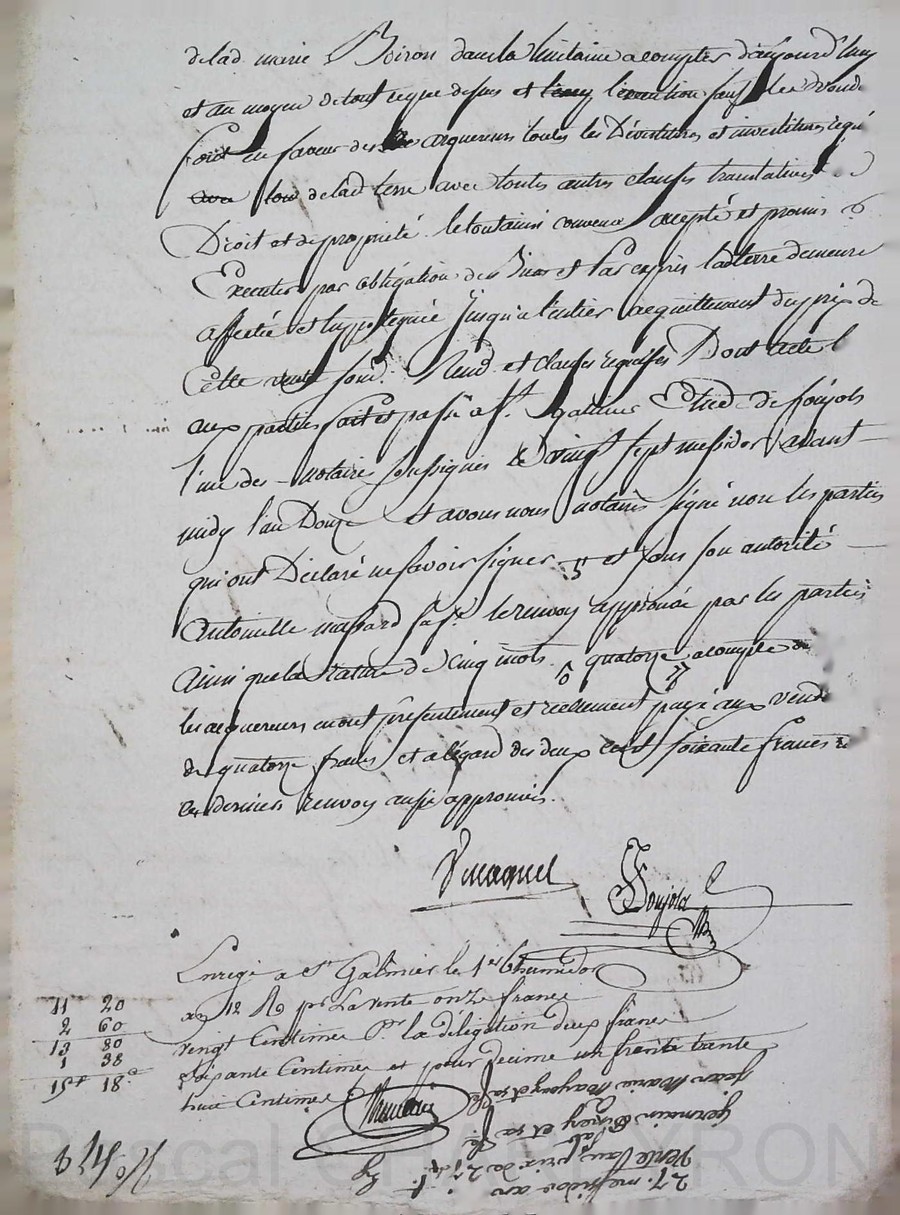 delad. marie Boiron dans la huitaine a comptes d'aujourd'huy
et au moyen de tout ce que dessus et sauf les vend.
font en faveur des acquereurs toutes les Dévestitures et investitures requi
lad terre avec toutes autres clauses translatives
Droit et de propriété. le tout ainsi convenu accepté et promis
Executer par obligation des Biens et Par exprès lad. terre demeure
affectée et hypotequée Jusqu'a l'entier acquittement du prix de
Cette vente soud. Rend et clauses requises Dont acte
aux parties fait et passé a St. galmier Etude de foujols
l'un des notaires soussignés Le vingt sept messidor avant
midy l'an Douze et avons nous notaires signé non les parties
qui ont Déclaré ne savoir signer et sous son autorité
Antoinette massard sa fe. le renvoy approuvé par les parties
Ainsi que la rature de Cinq mots. quatorze acompte
les acquereurs en ont présentement et reellement payé aux vend
de quatorze francs et a l'égard des deux cent soixante francs
ces derniers renvoys aussi approuvés.
foujols
Enregé a St Galmier le 1er thermidor
an 12 Ro pr La vente onze francs
vingt Centimes Pr la déligation deux francs
soixante Centimes et pour décime un franc trente
huit Centimes
11 20
2 60
13 80
1 38
15f 18c
27. messidor an
Vente au prix de 274f.
germain et sa fe
jean Marie et sa
Pascal C
YRON